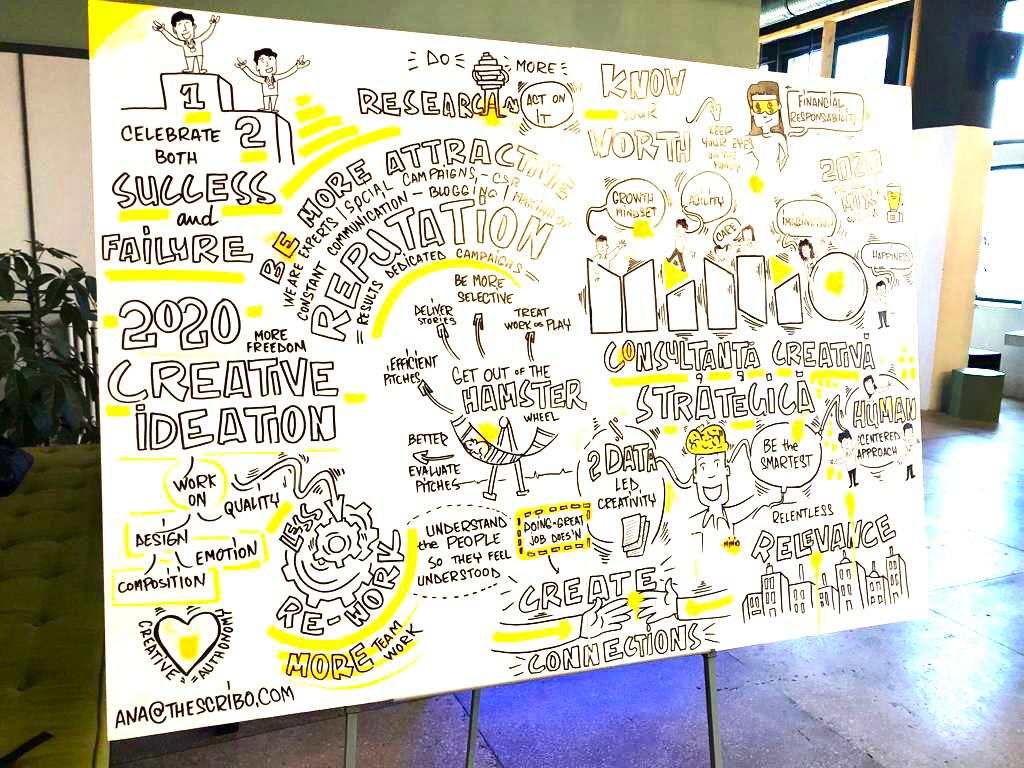 1
2
CELEBRATE
BOTH
SUCCESS
and
FAILURE
DO MORE
RESEARCH
ACT ON
IT
BE MORE ATTRACTIVE
WE ARE EXPERTS | SOCIAL CAMPAIGNS - CSR
CONSTANT COMMUNICATION - BLOGGING
REPUTATION
RESULTS DEDICATED CAMPAIGNS
KNOW
YOUR
WORTH
KEEP
YOUR EYES
ON THE
MONEY
FINANCIAL
RESPONSABILITY
2020
GROWTH
MINDSET
AGILITY
CARE
IMAGINATION
HAPPINESS
2020
MORE
FREEDOM
CREATIVE
IDEATION
BE MORE
SELECTIVE
DELIVER
STORIES
TREAT
WORK as PLAY
EFFICIENT
PITCHES
GET OUT OF THE
HAMSTER
WHEEL
BETTER
EVALUATE
PITCHES
CONSULTANȚĂ CREATIVĂ
STRATEGICĂ
HUMAN
CENTERED
APPROACH
2 DATA
LED
CREATIVITY
BE the
SMARTEST
RELENTLESS
RELEVANCE
WORK
ON
QUALITY
DESIGN
EMOTION
COMPOSITION
LESS
RE-WORK
MORE TEAM
WORK
UNDERSTAND
the PEOPLE
SO THEY FEEL
UNDERSTOOD
DOING-GREAT
JOB DOES'N
CREATE
CONNECTIONS
CREATIVE
AUTONOMY
ANA@THESCRIBO.COM